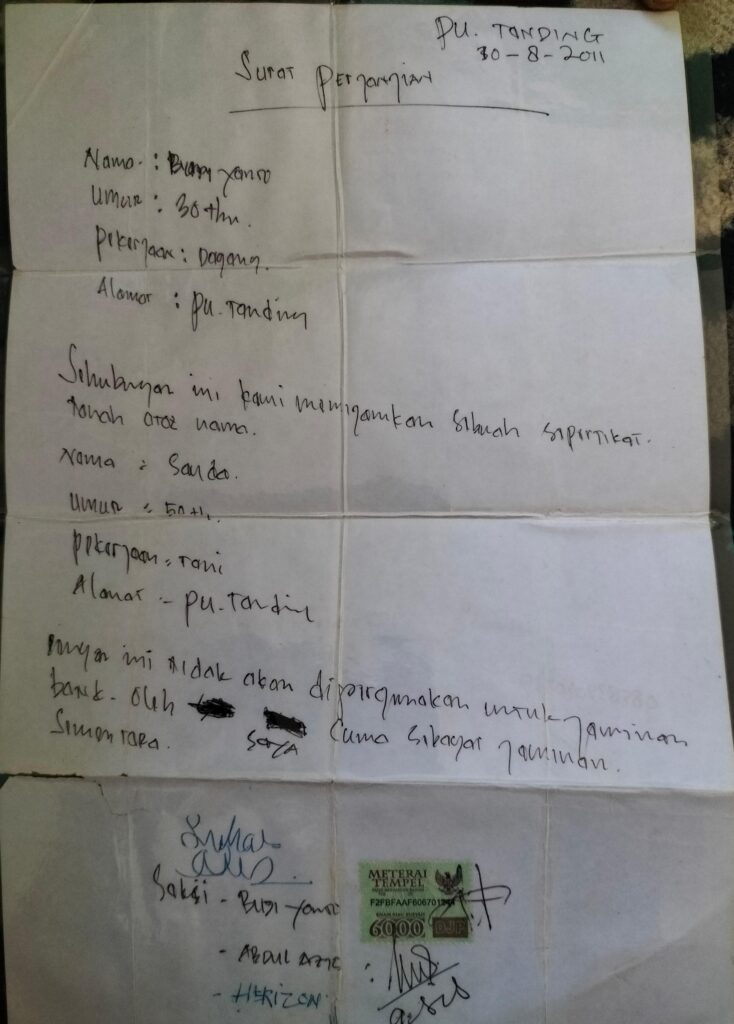 PU. TANDING
30-8-2011
Surat Perjanjian
Nama : Budi Yanto
Umur : 30 thn.
Pekerjaan : Dagang.
Alamat : PU. Tanding
Sehubungan ini kami meminjamkan sebuah sepertikat.
tanah ataz nama.
Nama : Sauda.
Umur : 50 th.
Pekerjaan : Tani
Alamat - PU. Tanding
Dengan ini tidak akan dipergunakan untuk jaminan
bank. oleh saya Cuma sebagai jaminan.
Sementara.
METERAI
TEMPEL
6000 DJP
Saksi - Budi Yanto
- ABDUL AZIS :
- HERIZON